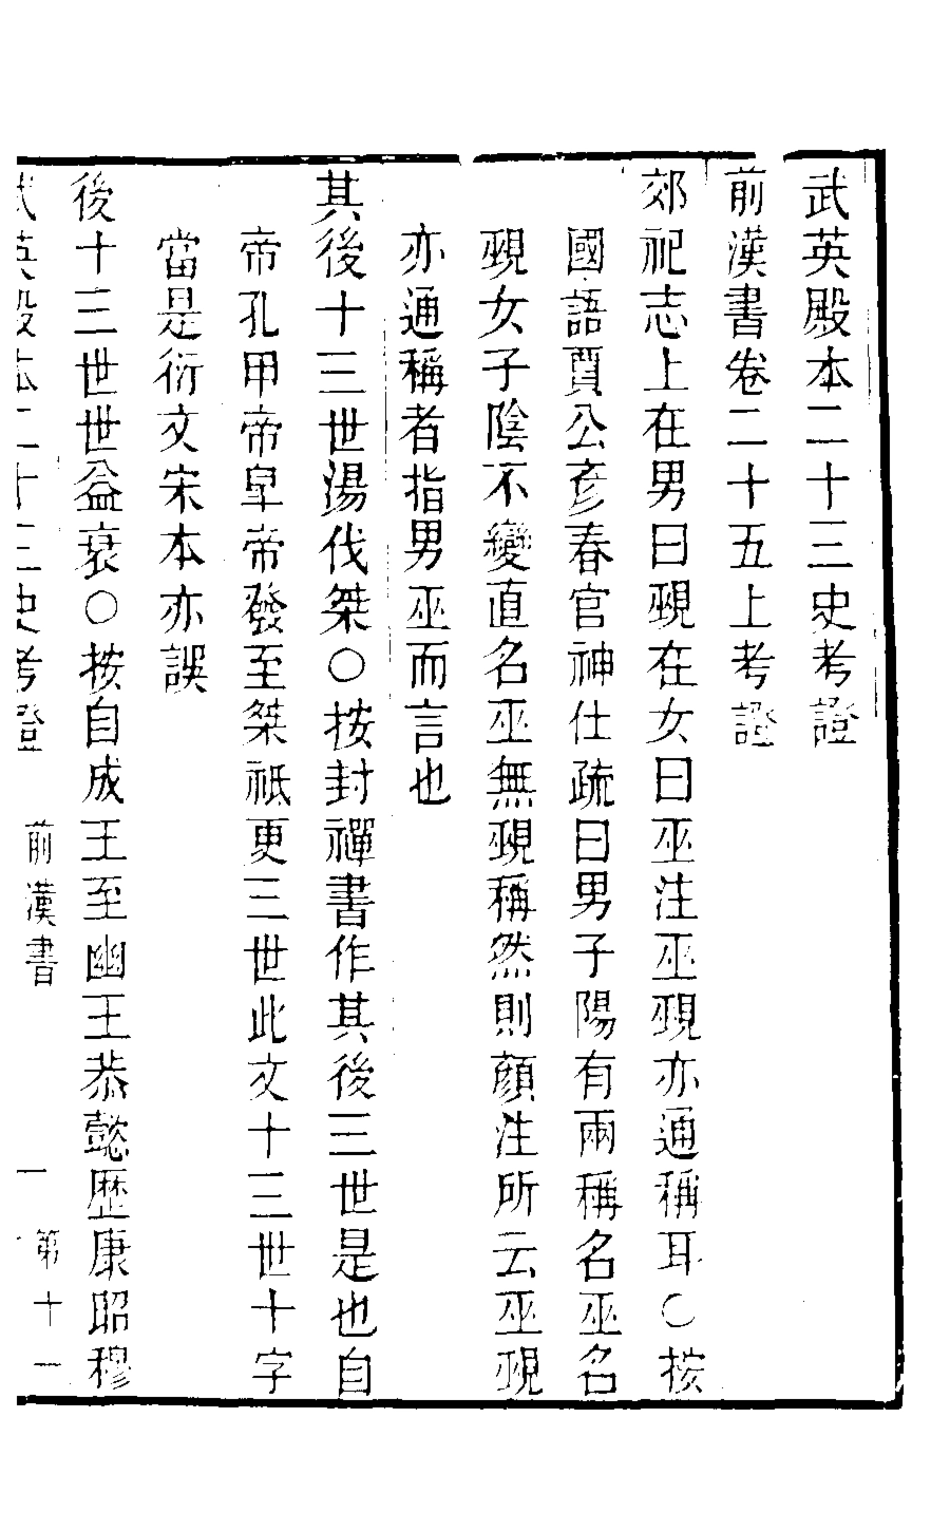 武英殿本二十三史考證
前漢書卷二十五上考證
郊祀志上在男曰覡在女曰巫注巫覡亦通稱耳○按
國語賈公彥春官神仕疏曰男子陽有兩稱名巫名
覡女子陰不變直名巫無覡稱然則顏注所云巫覡
亦通稱者指男巫而言也
其後十三世湯伐桀○按封禪書作其後三世是也自
帝孔甲帝皐帝發至桀祇更三世此文十三世十字
當是衍文宋本亦誤
後十三世世益衰○按自成王至幽王恭懿歷康昭穆
武英殿本二十三史考證 前漢書 一 第十一